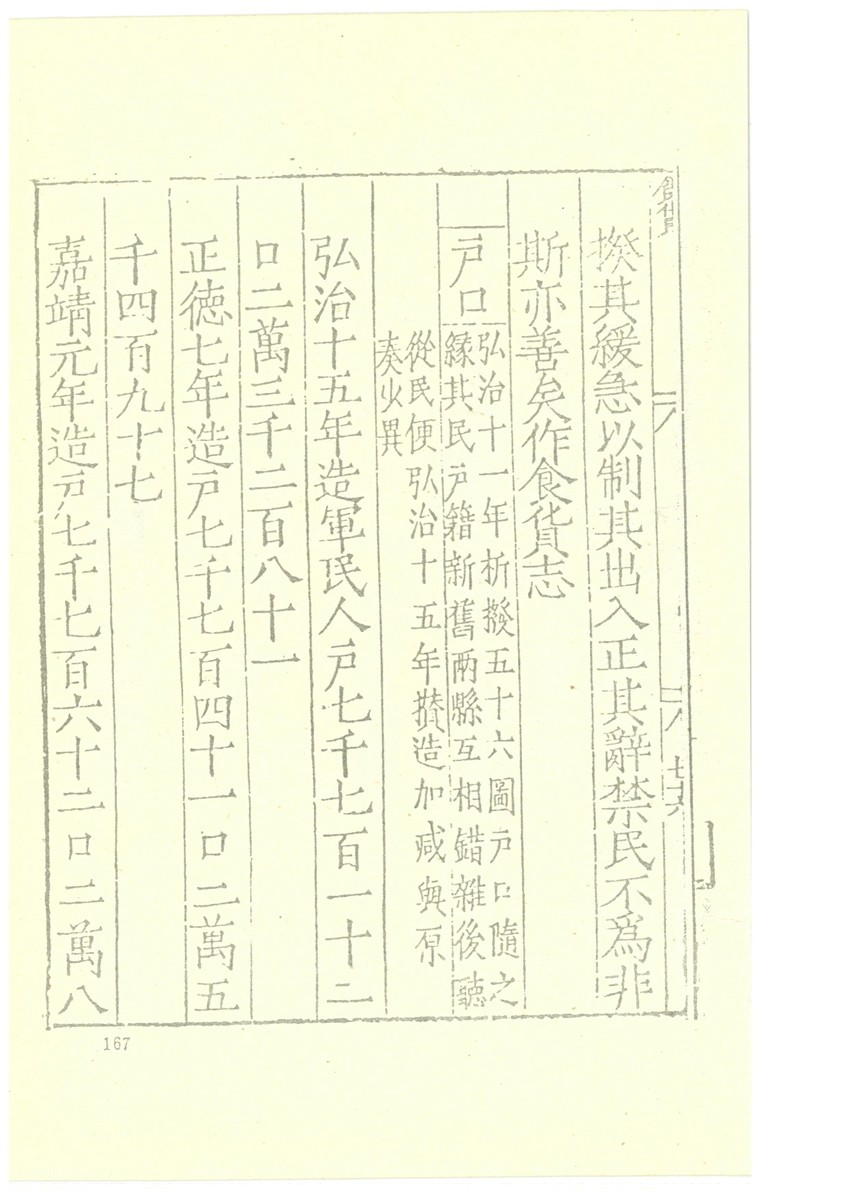 食貨
揆其緩急以制其出入正其辭禁民不為非
斯亦善矣作食貨志
戶口
弘治十一年析撥五十六圖戶口隨之
緣其民戶籍新舊兩縣互相錯雜後聽
從民便弘治十五年攅造加减與原
奏少異
弘治十五年造軍民人戶七千七百一十二
口二萬三千二百八十一
正德七年造戶七千七百四十一口二萬五
千四百九十七
嘉靖元年造戶七千七百六十二口二萬八
167